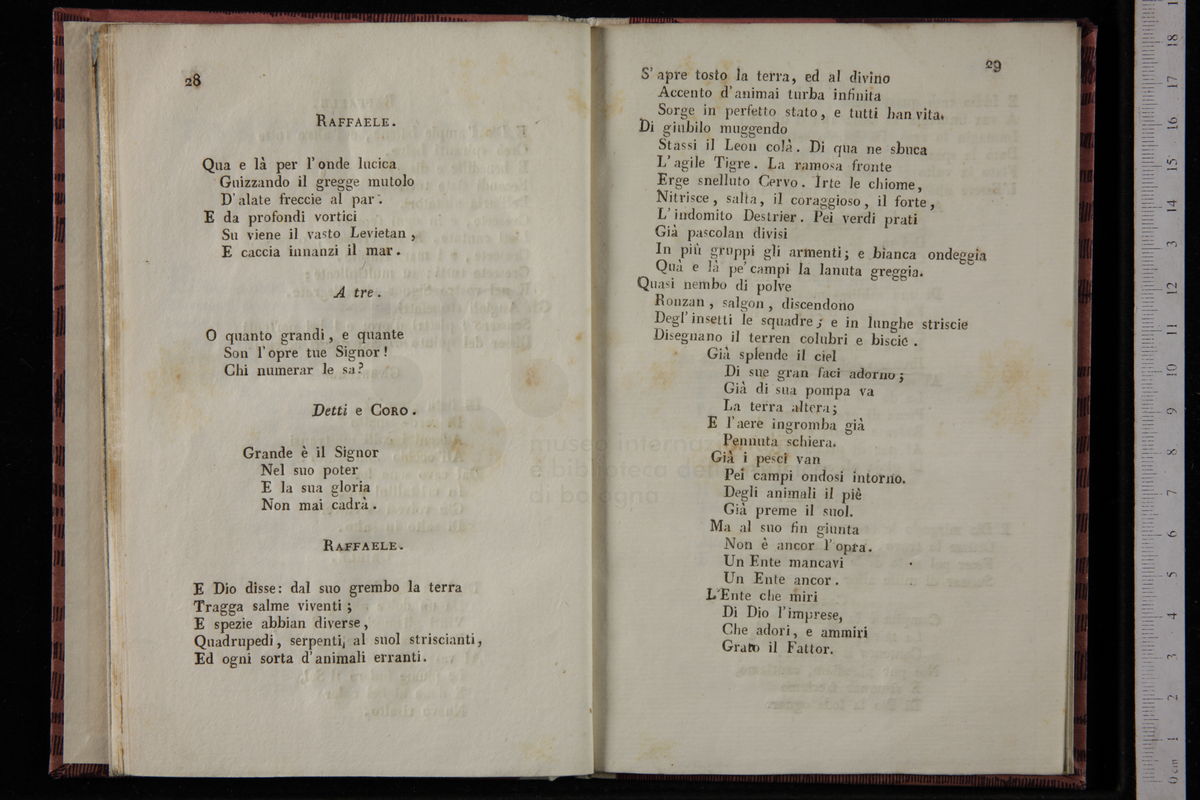 28
RAFFAELE.
Qua e là per l'onde lucica
Guizzando il gregge mutolo
D'alate freccie al par.
E da profondi vortici
Su viene il vasto Levietan,
E caccia innanzi il mar.
A tre.
O quanto grandi, e quante
Son l'opre tue Signor!
Chi numerar le sa?
Detti e CORO.
Grande è il Signor
Nel suo poter
E la sua gloria
Non mai cadrà.
RAFFAELE.
E Dio disse: dal suo grembo la terra
Tragga salme viventi;
E spezie abbian diverse,
Quadrupedi, serpenti, al suol striscianti,
Ed ogni sorta d'animali erranti.
29
S'apre tosto la terra, ed al divino
Accento d'animai turba infinita
Sorge in perfetto stato, e tutti han vita.
Di giubilo muggendo
Stassi il Leon colà. Di qua ne sbuca
L'agile Tigre. La ramosa fronte
Erge snelluto Cervo. Irte le chiome,
Nitrisce, salta, il coraggioso, il forte,
L'indomito Destrier. Pei verdi prati
Già pascolan divisi
In più gruppi gli armenti; e bianca ondeggia
Quà e là pe' campi la lanuta greggia.
Quasi nembo di polve
Ronzan, salgon, discendono
Degl'insetti le squadre; e in lunghe striscie
Disegnano il terren colubri e biscie.
Già splende il ciel
Di sue gran faci adorno;
Già di sua pompa va
La terra altera;
E l'aere ingromba già
Pennuta schiera.
Già i pesci van
Pei campi ondosi intorno.
Degli animali il piè
Già preme il suol.
Ma al suo fin giunta
Non è ancor l'opra.
Un Ente mancavi
Un Ente ancor.
L'Ente che miri
Di Dio l'imprese,
Che adori, e ammiri
Grato il Fattor.
museo internaz
e biblioteca de
di bologna
0 cm 1 2 3 4 5 6 7 8 9 10 11 12 13 14 15 16 17 18